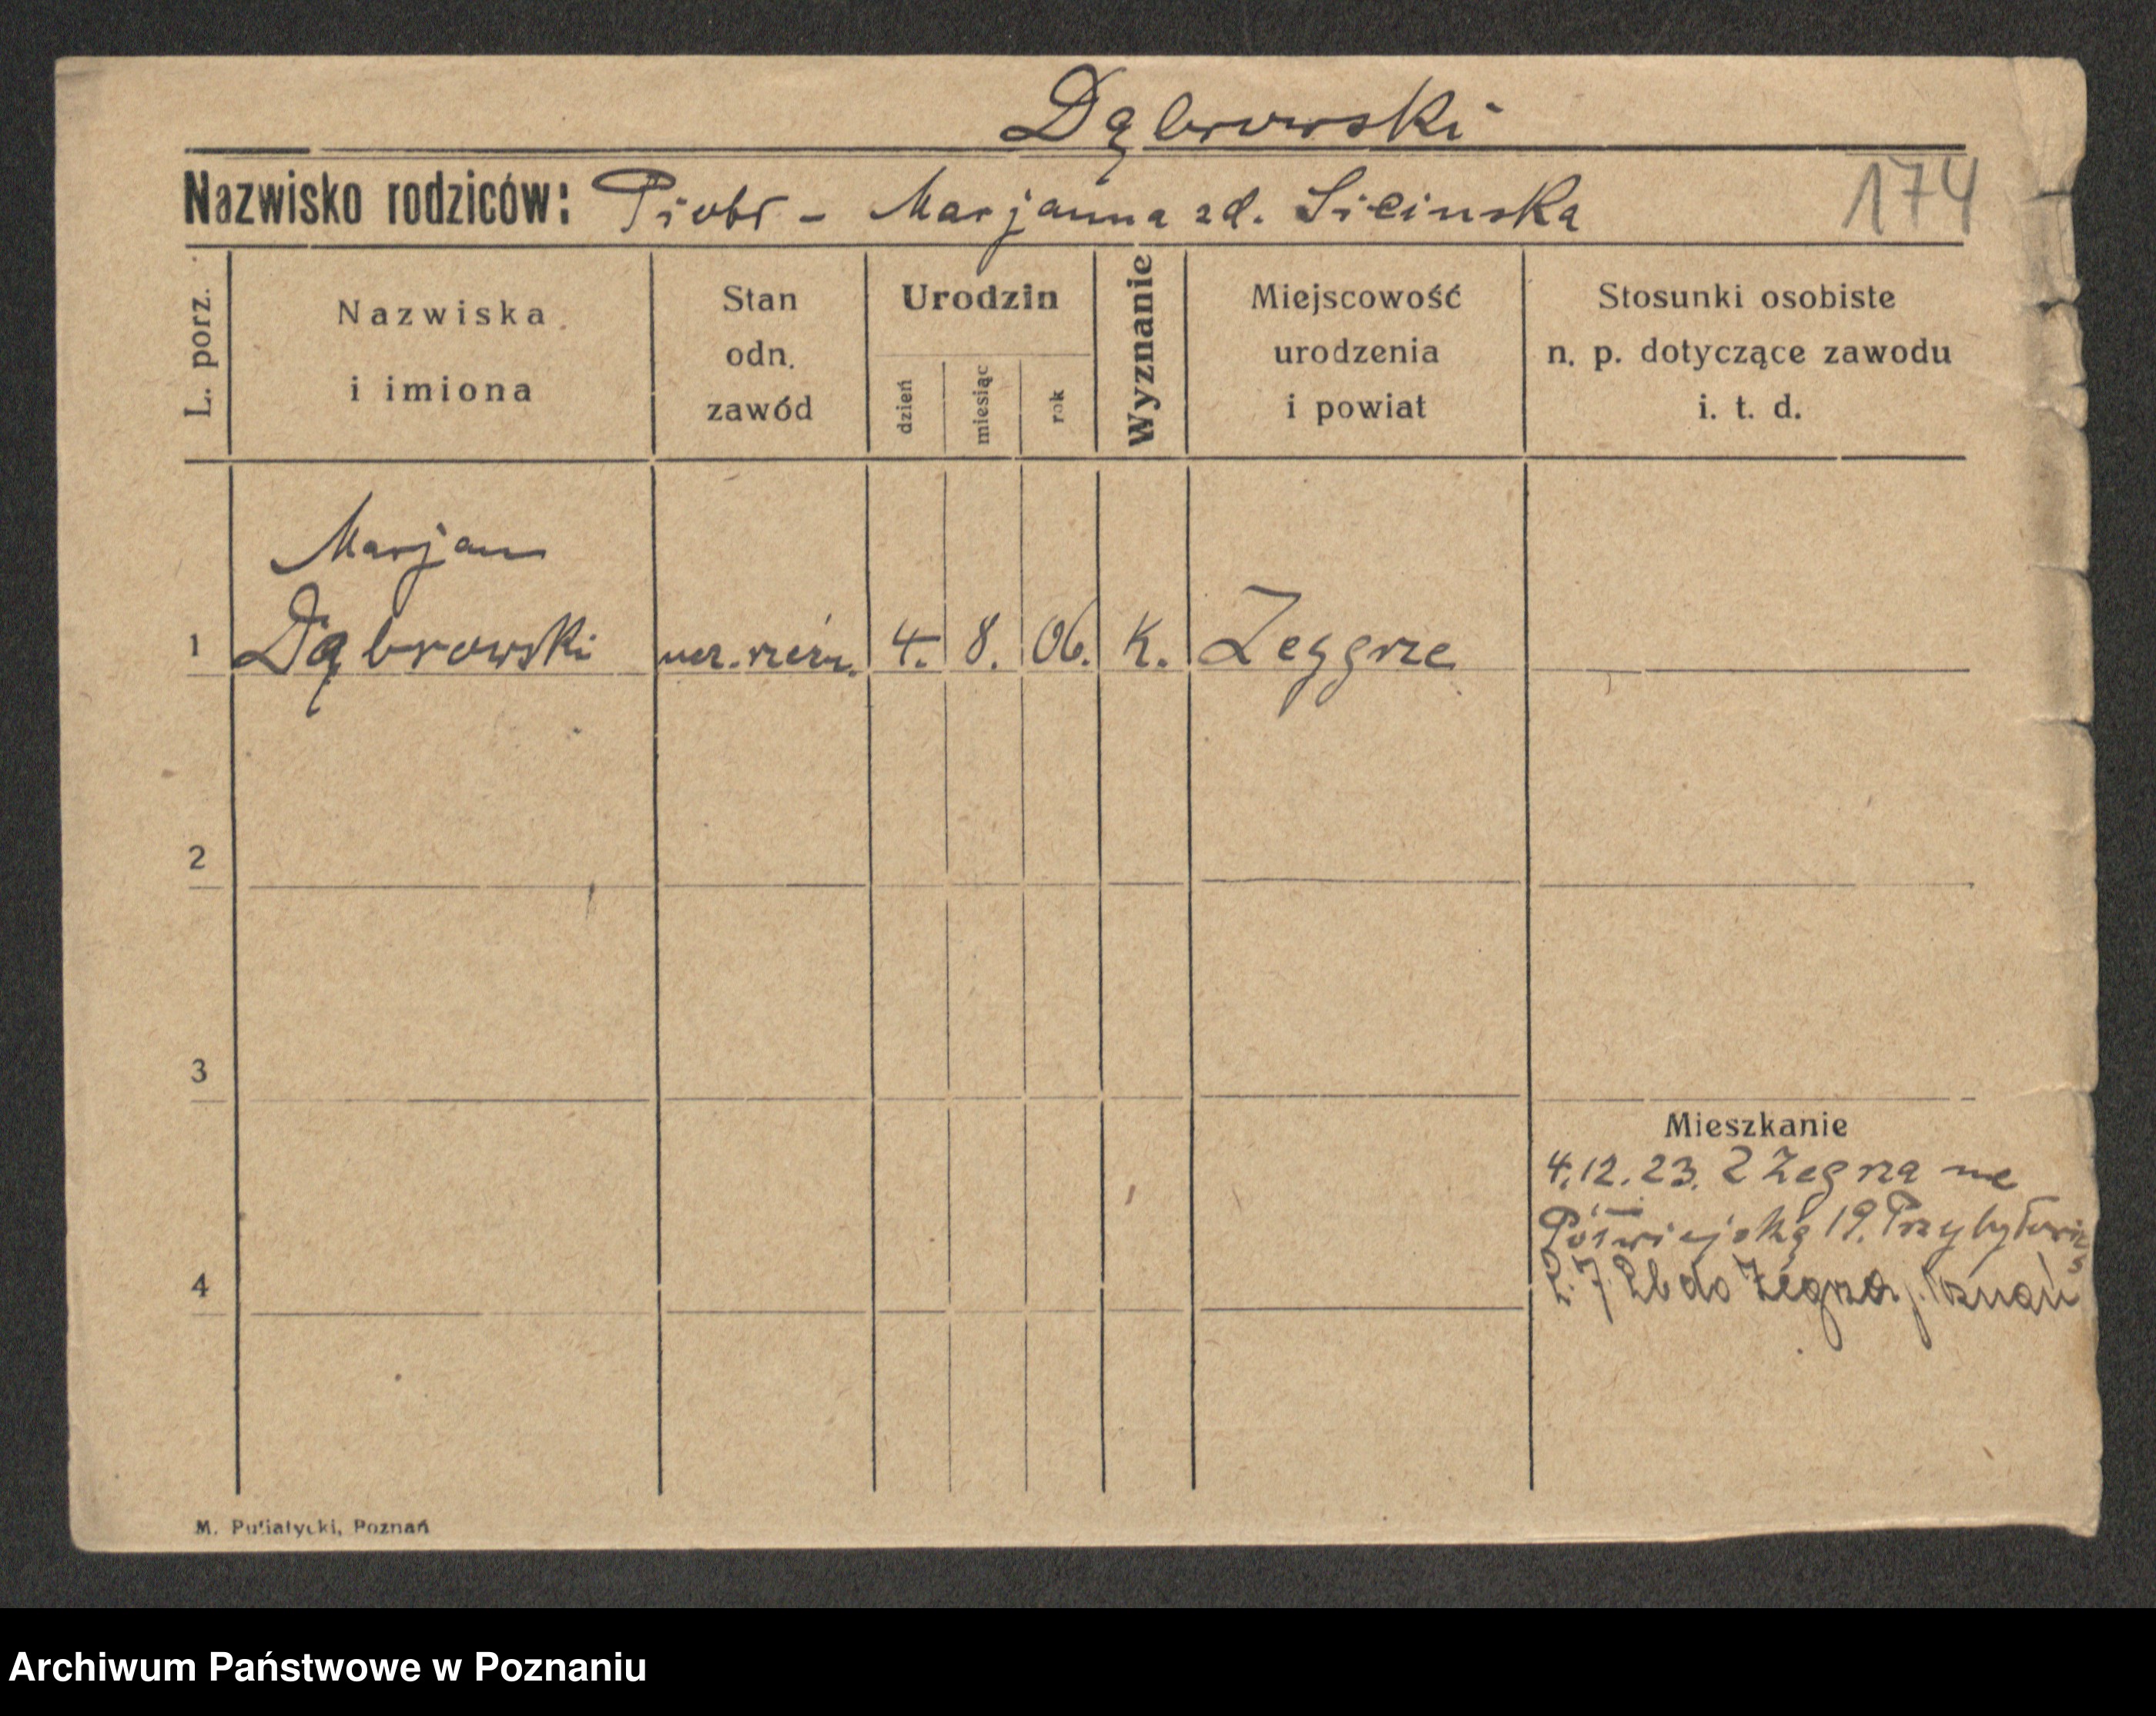 Dąbrowski
Nazwisko rodziców: Piotr - Marjanna zd. Silinska
174
L. porz.
Nazwiska
i imiona
Stan
odn.
zawód
Urodzin
dzień
miesiąc
rok
Wyznanie
Miejscowość
urodzenia
i powiat
Stosunki osobiste
n. p. dotyczące zawodu
i. t. d.
Marjan
1 Dąbrowski ucz. rzeźn. 4. 8. 06. K. Zeggrze
2
3
Mieszkanie
4.12.23. Z Zegrza na
Półwiejską 19.
4
do Zegrza p. Poznań
M. Putiatycki, Poznań
Archiwum Państwowe w Poznaniu